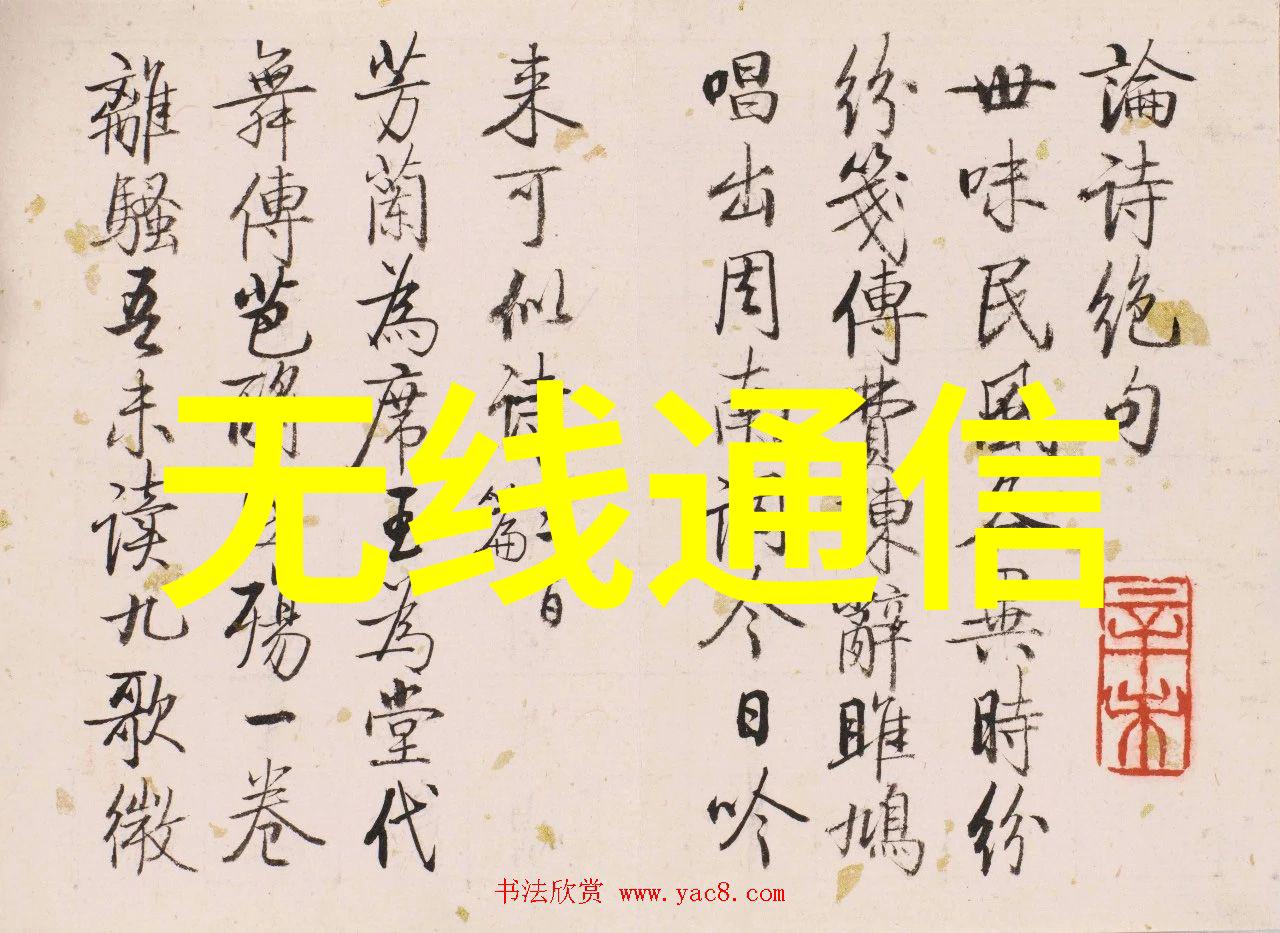 論诗绝句
世味民風各異時纷
纷箋傳費揀辭雎鳩
唱出周南調今日吟
来可似诗篇
芳蘭為席玉為堂代
舞傳芭酹殤一卷
離騷吾未读九歌微
辛未
无线通信
书法欣赏 www.yac8.com